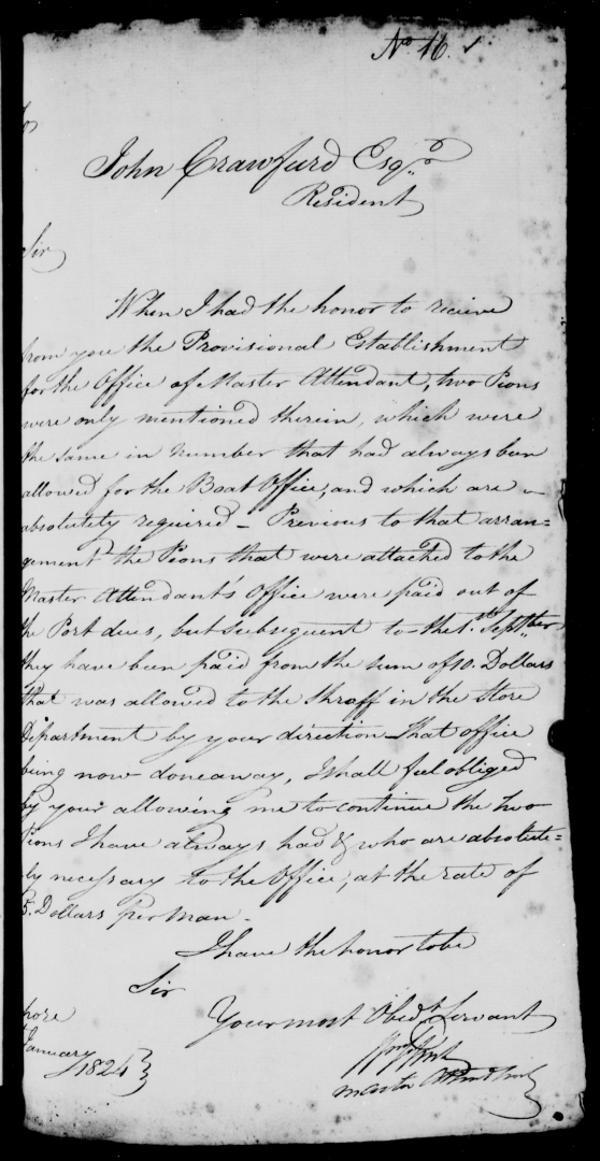 No. 16.
To
John Crawfurd Esqr.
Resident
Sir
When I had the honor to recieve
from you the Provisional Establishment
for the Office of Master Attendant, two Pions
were only mentioned therein, which were
the same in number that had always been
allowed for the Boat Office, and which are
absolutely required – Previous to that arran=
gement the Pions that were attached to the
Master Attendant's Office were paid out of
the Port dues, but subsequent to the 1st. Septber
they have been paid from the sum of 10. Dollars
that was allowed to the Shroff in the Store
Department by your direction – that office
being now done away, I shall feel obliged
by your allowing me to continue the two
Pions I have always had & who are absolute=
ly necessary to the Office, at the rate of
5. Dollars per man –
I have the honor to be
Sir
Your most Obedt. Servant
pore
January
1824
Master Attendant